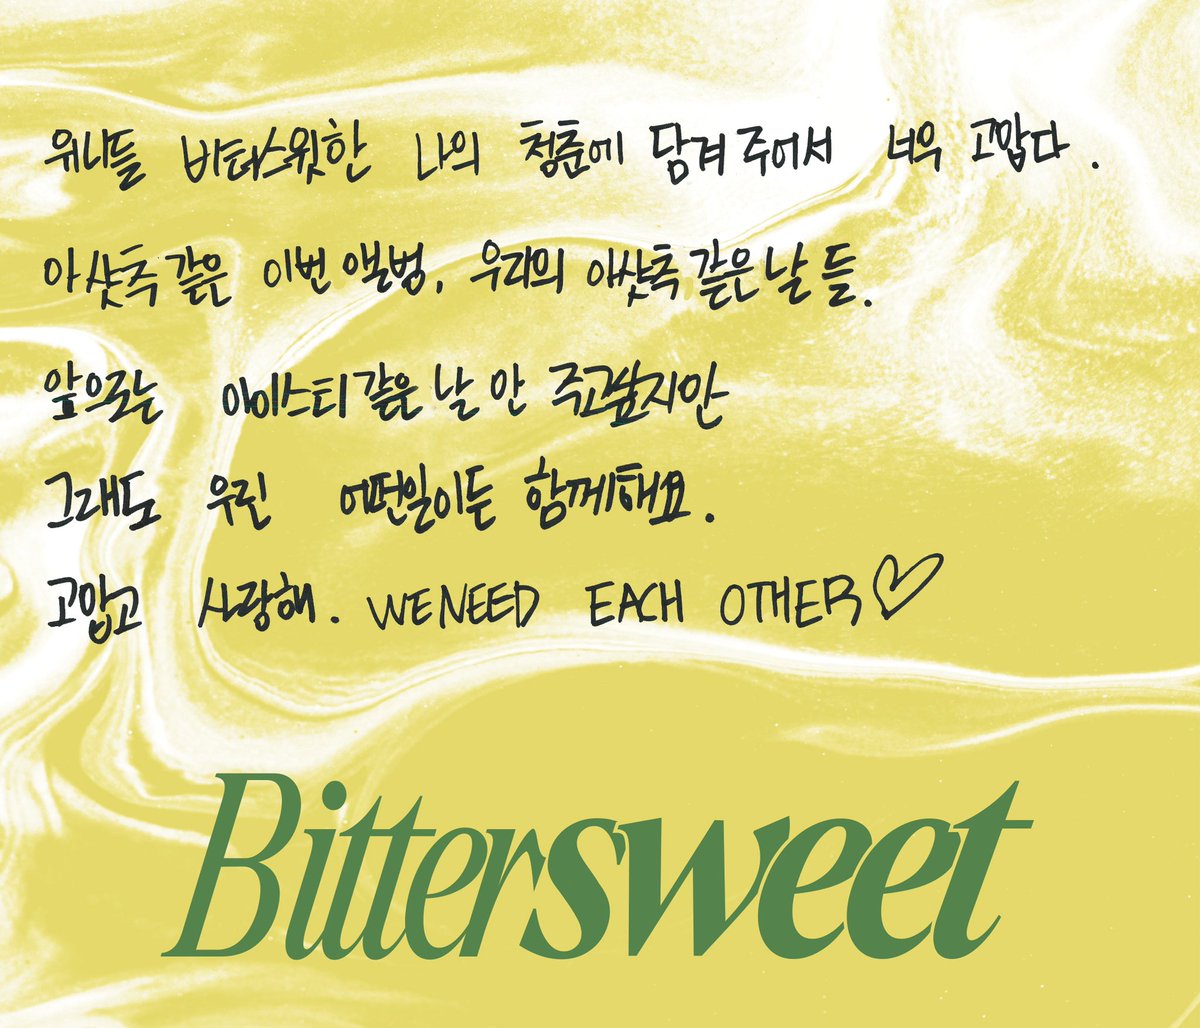 위니들 비터스윗한 나의 청춘에 담겨 주어서 너무 고맙다.
아샷추 같은 이번 앨범, 우리의 아샷추 같은 날들.
앞으로는 아이스티 같은 날 만 주고싶지만
그래도 우린 어떤일이든 함께해요.
고맙고 사랑해. WE NEED EACH OTHER♡
Bittersweet